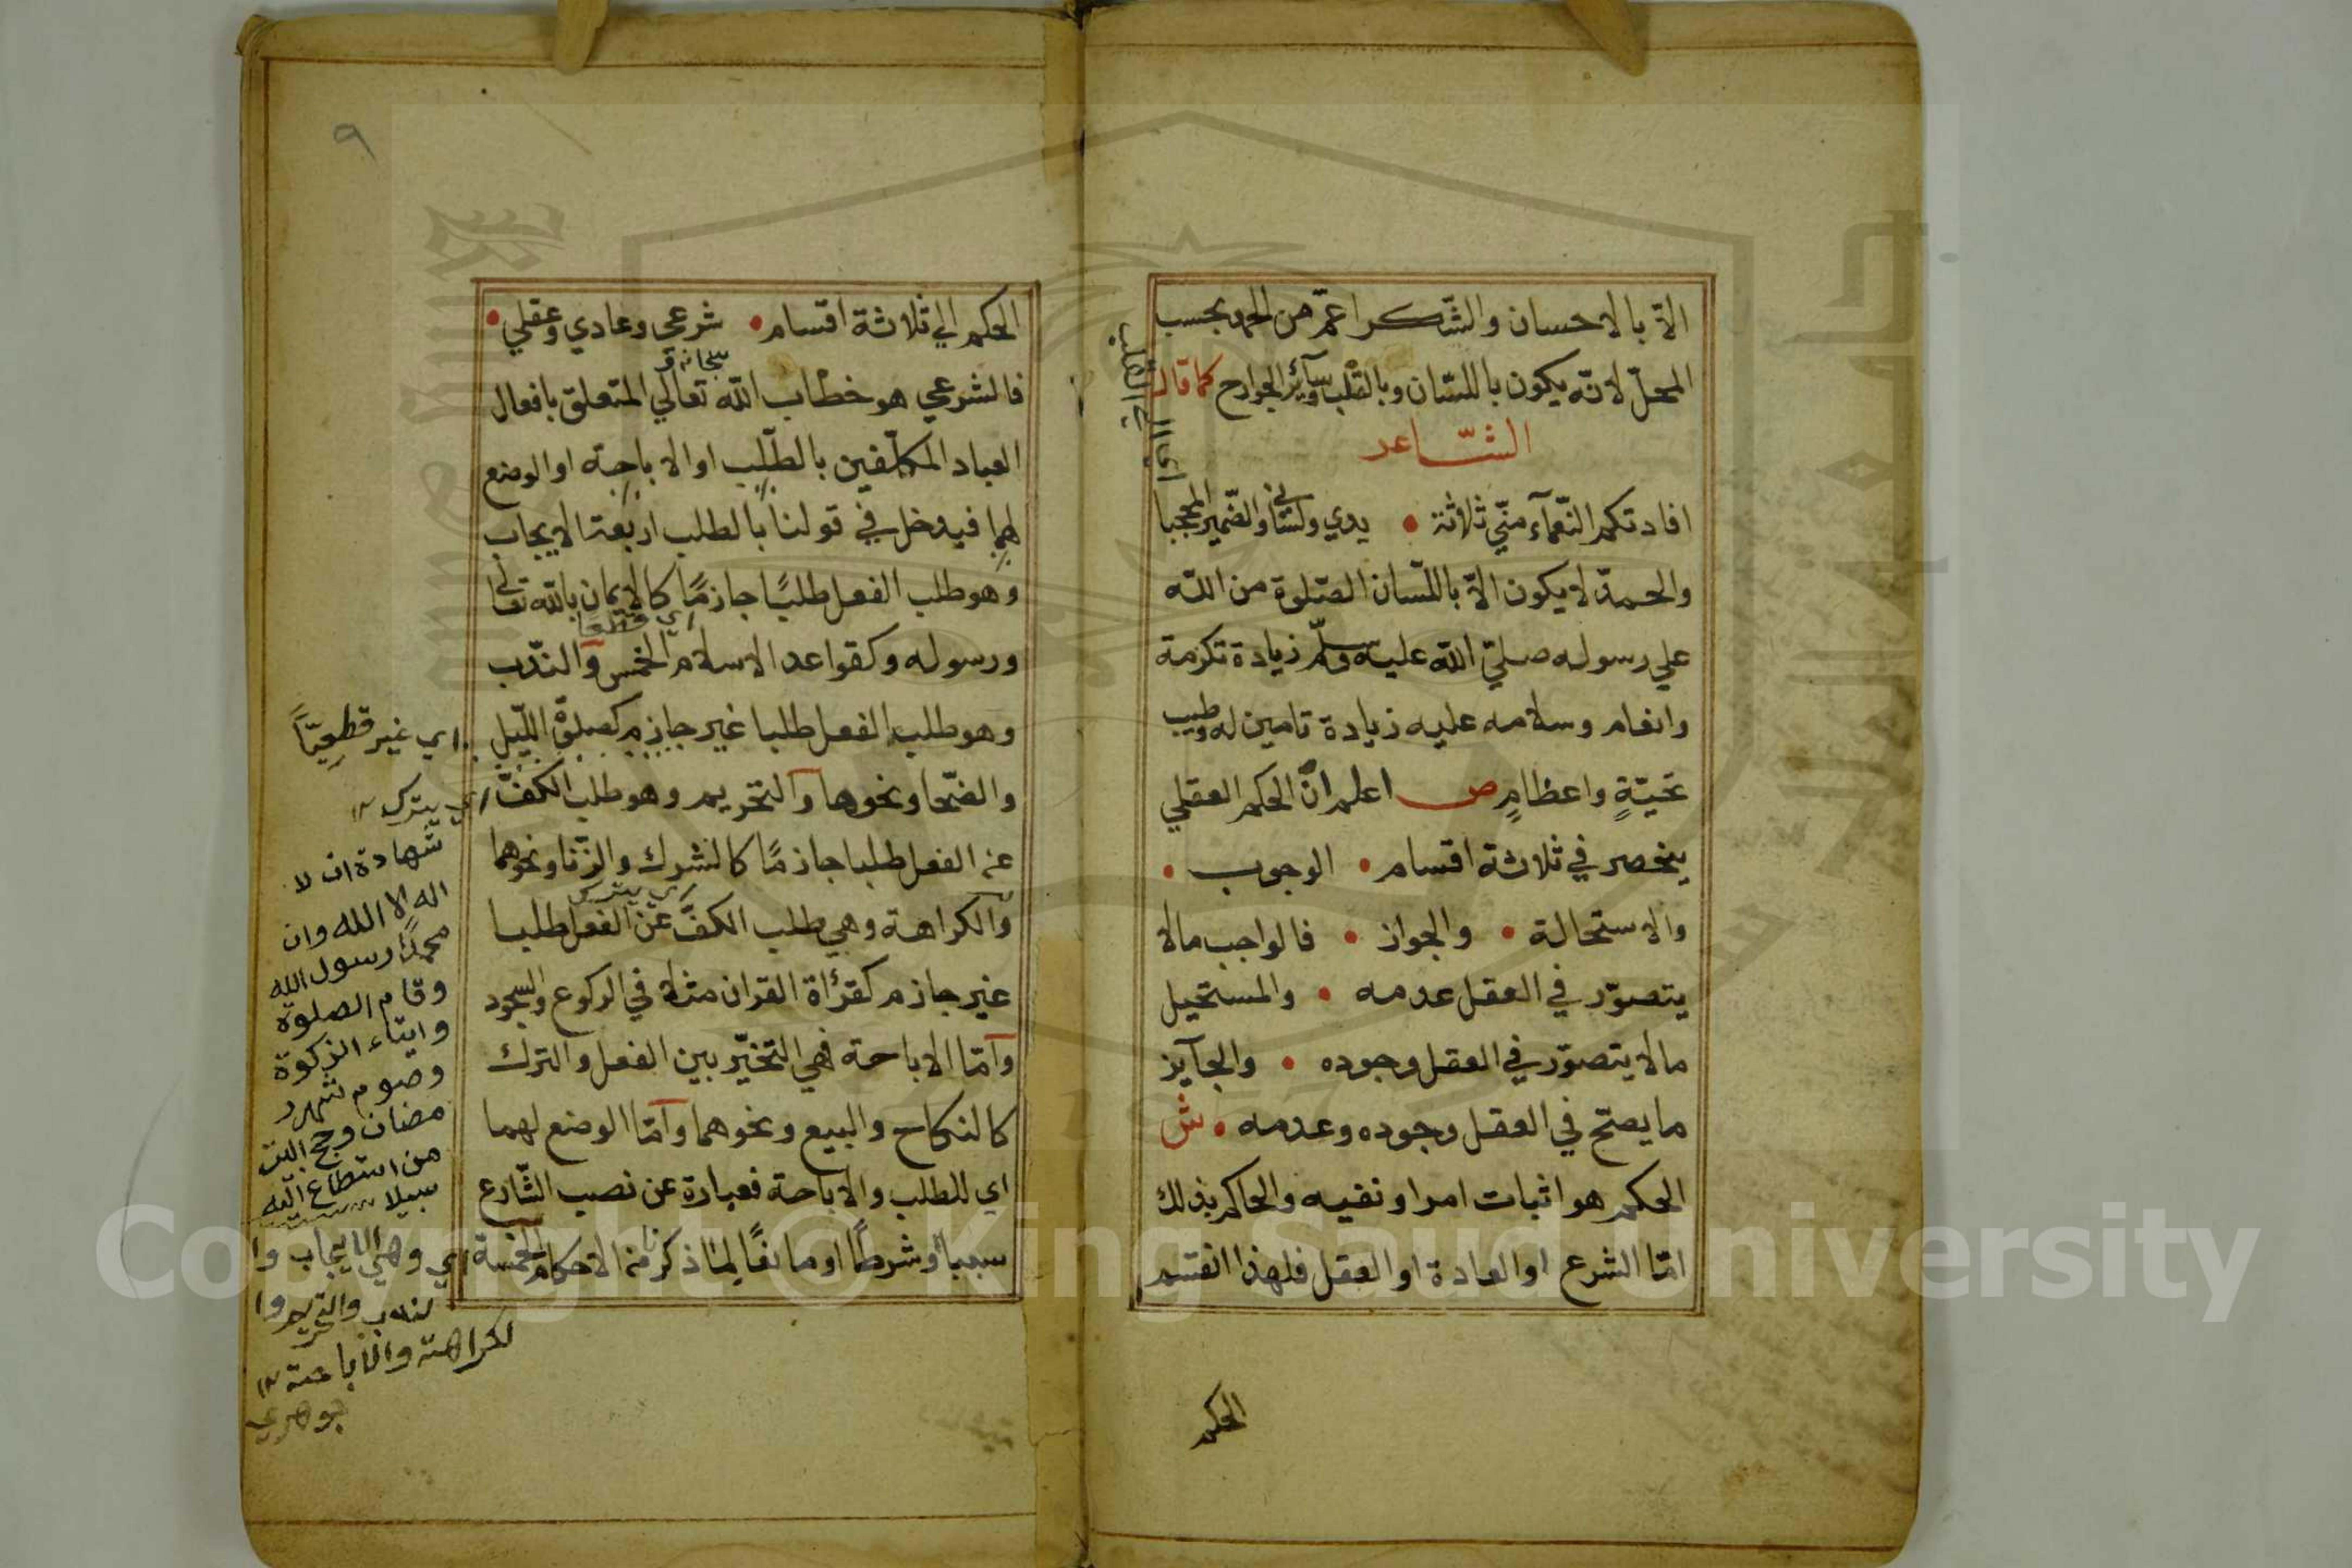 الّا بالاحسان والشّكر اعمّ من الحمد بحسب
المحلّ لانّه يكون باللّسان وبالقلب وسآئر الجوارح كما قال
الشّاعر
افادتكم النّعمآء منّي ثلاثة • يدي ولساني والضّمير المحجبا
اي مال الي القلب
والحمد لا يكون الّا باللّسان الصّلوة من اللّه
علي رسوله صلّي اللّه عليه وسلّم زيادة تكرمة
وانعام وسلامه عليه زيادة تامين له وطيب
تحيّةٍ واعظامٍ ص اعلم انّ الحكم العقلي
ينحصر في ثلاثة اقسام • الوجوب •
والاستحالة • والجواز • فالواجب مالا
يتصوّر في العقل عدمه • والمستحيل
مالا يتصوّر في العقل وجوده • والجآيز
ما يصحّ في العقل وجوده وعدمه • ش
الحكم هو اثبات امر او نفيه والحاكم بذلك
امّا الشرع او العادة او العقل فلهذا انقسم
الحكم
٩
الحكم الي ثلاثة اقسام • شرعي وعادي وعقلي •
سبحانه و
فالشرعي هو خطاب اللّه تعالي المتعلق بافعال
العباد المكلّفين بالطّلب او الاباحة او الوضع
لهما فيدخل في قولنا بالطلب اربعة الايجاب
وهو طلب الفعل طلبًا جازمًا كالايمان باللّه تعالي
اي قطعا
ورسوله وكقواعد الاسلام الخمس والندب
وهو طلب الفعل طلبا غير جازم كصلوة اللّيل
والضّحا ونحوها والتحريم وهو طلب الكفّ
عن الفعل طلبا جازمًا كالشرك والزّنا ونحوهما
اي يترك
والكراهة وهي طلب الكفّ عن الفعل طلبا
غير جازم كقرأة القران مثلا في الركوع والسجود
وامّا الاباحة فهي التخيّر بين الفعل والترك
كالنكاح والبيع ونحوهما وامّا الوضع لهما
اي للطلب والاباحة فعبارة عن نصب الشّارع
سببا او شرطًا او مانعًا لما ذكرنا من الاحكام الخمسة
اي غير قطعيّاً
اي يترك ١٢
شهادة ان لا
اله الا الله وان
محمدًا رسول الله
وقام الصلوة
وايتاء الزكوة
وصوم شهر ر
مضان وحج البيت
من استطاع اليه
سبيلا
اي وهي الايجاب وا
لندب والتحريم وا
لكراهة والاباحة ١٢
جوهري
Copyright © King Saud University